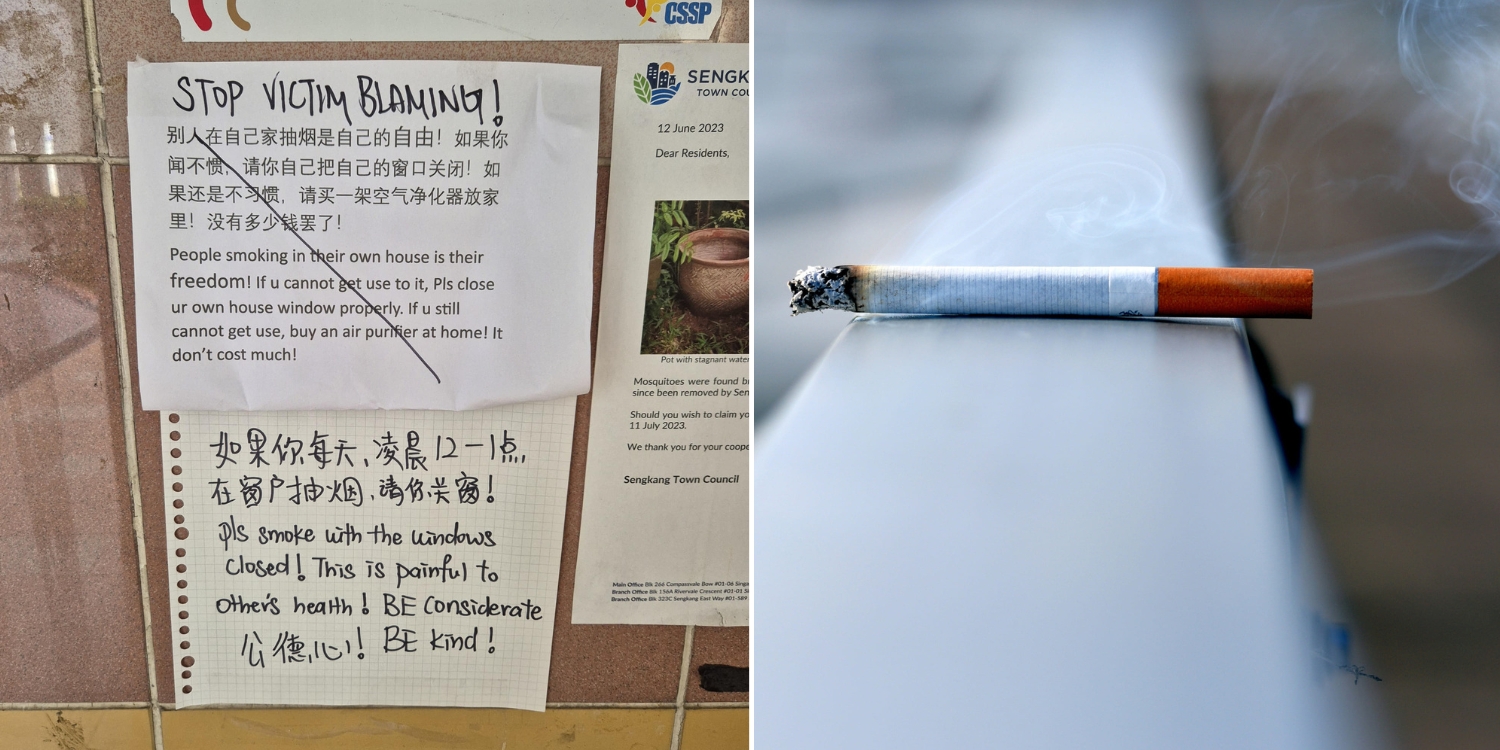 CSSP
STOP VICTIM BLAMING!
别人在自己家抽烟是自己的自由！如果你
闻不惯，请你自己把自己的窗口关闭！如
果还是不习惯，请买一架空气净化器放家
里！没有多少钱罢了！
People smoking in their own house is their
freedom! If u cannot get use to it, Pls close
ur own house window properly. If u still
cannot get use, buy an air purifier at home! It
don't cost much!
如果你每天、凌晨12-1点,
在窗户抽烟,请你关窗!
pls smoke with the windows
closed! This is painful to
other's health! BE Considerate
公德心! BE kind!
SENGK
TOWN COU
12 June 2023
Dear Residents,
Pot with stagnant water
Mosquitoes were found b
since been removed by Sen
Should you wish to claim yo
11 July 2023.
We thank you for your coope
Sengkang Town Council
Main Office Blk 266 Compassvale Bow #01-06 Singa
Branch Office Blk 156A Rivervale Crescent #01-01 Si
Branch Office Blk 323C Sengkang East Way #01-589